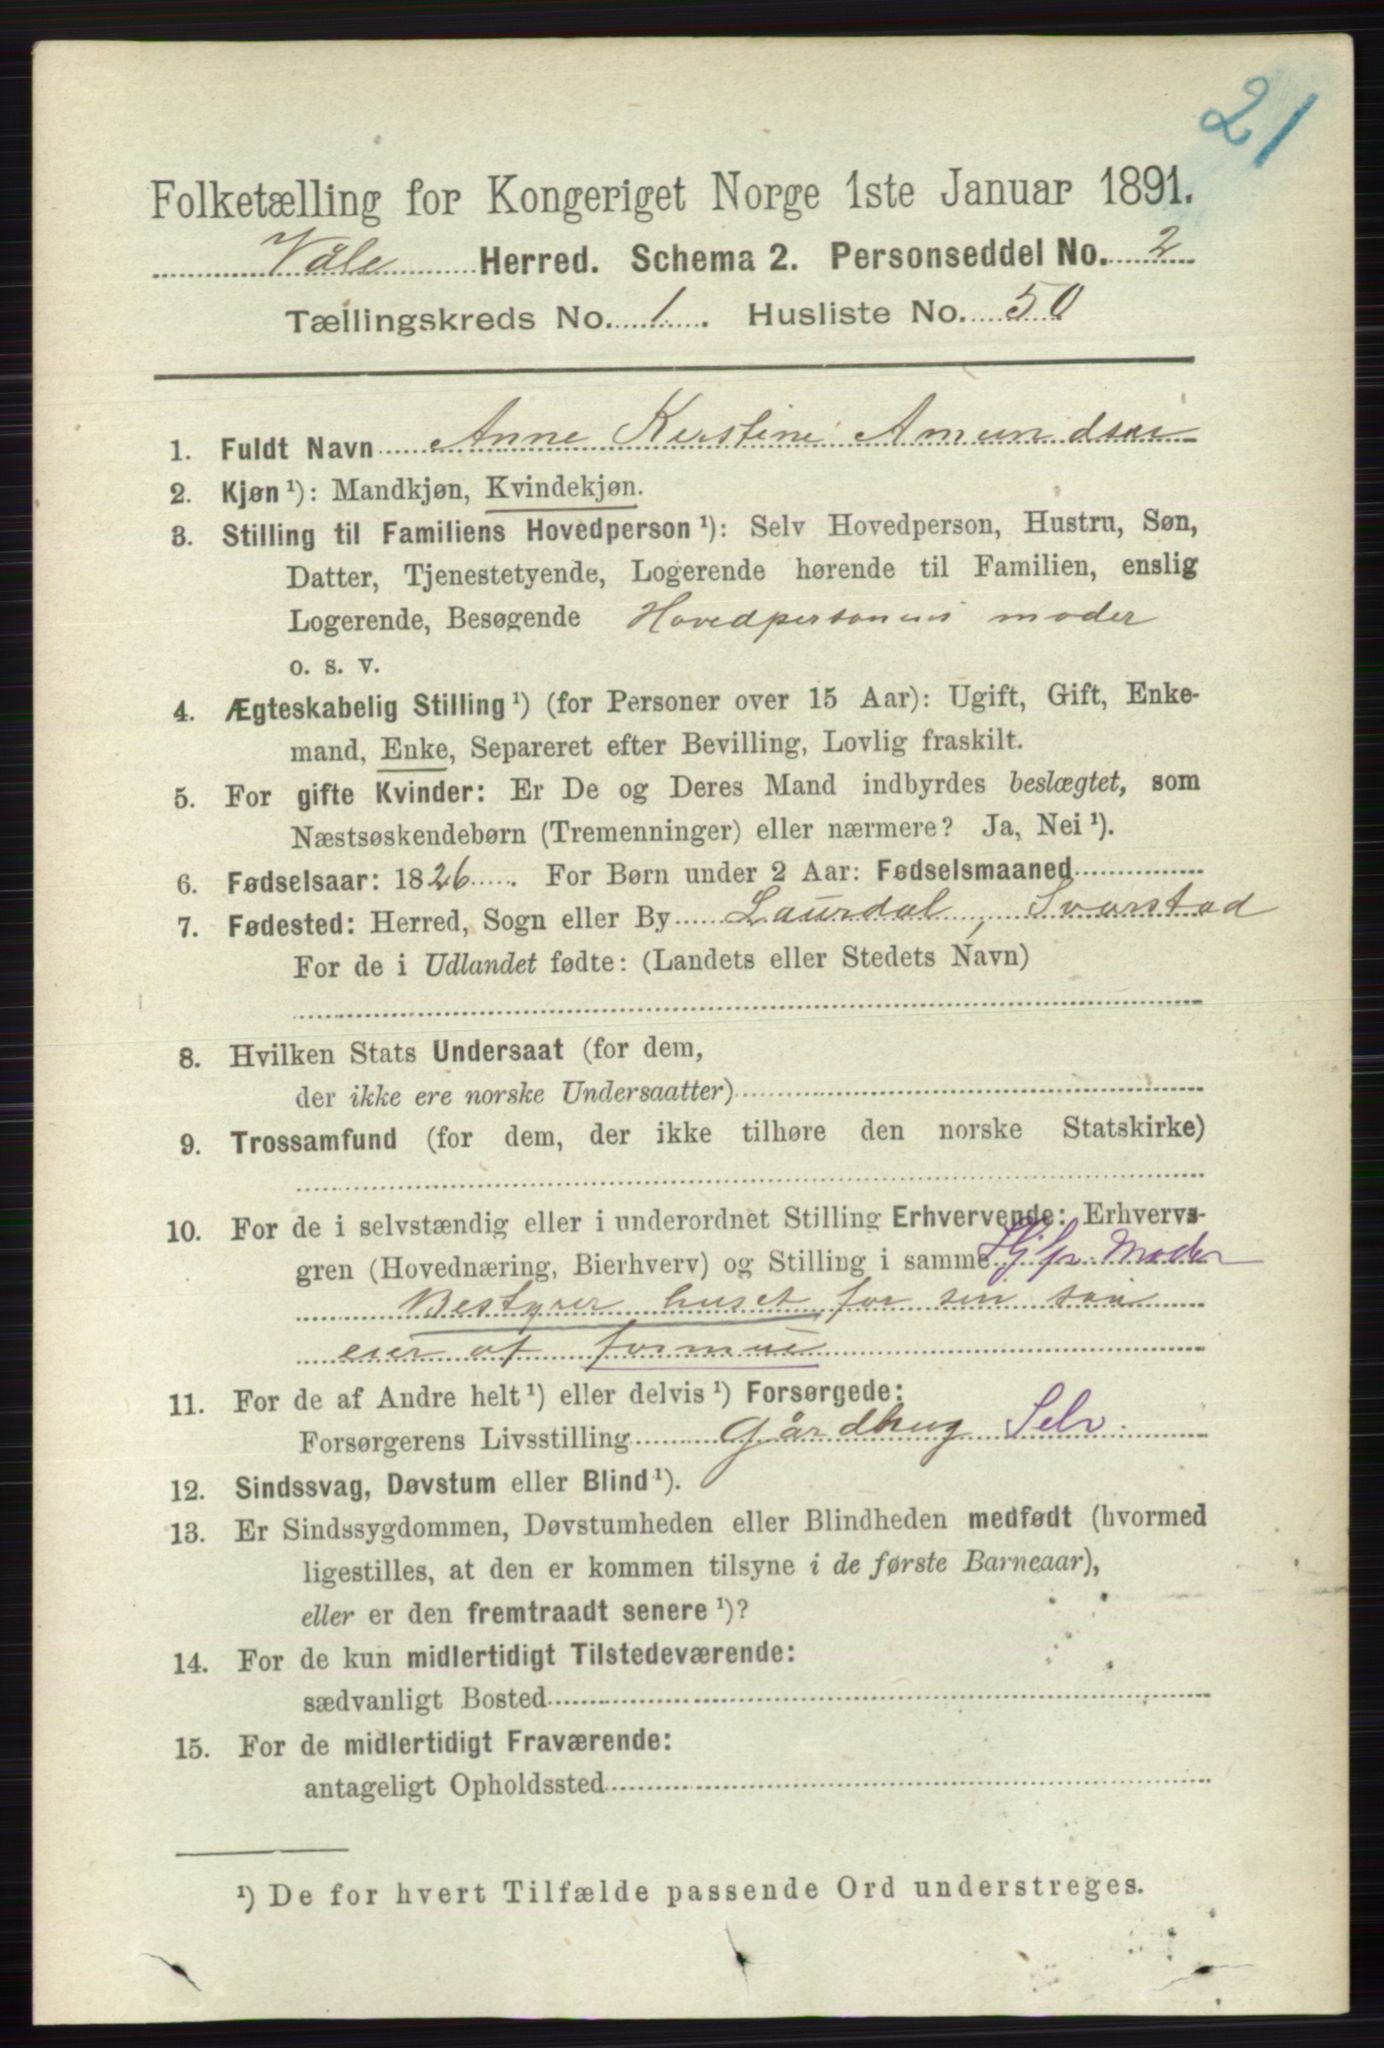 21
Folketælling for Kongeriget Norge 1ste Januar 1891.
Våle Herred. Schema 2. Personseddel No. 2
Tællingskreds No. 1. Husliste No. 50
1. Fuldt Navn Anne Kirstine Amundsen
2. Kjøn¹): Mandkjøn, Kvindekjøn.
3. Stilling til Familiens Hovedperson¹): Selv Hovedperson, Hustru, Søn,
Datter, Tjenestetyende, Logerende hørende til Familien, enslig
Logerende, Besøgende Hovedpersonens moder
o. s. v.
4. Ægteskabelig Stilling¹) (for Personer over 15 Aar): Ugift, Gift, Enke-
mand, Enke, Separeret efter Bevilling, Lovlig fraskilt.
5. For gifte Kvinder: Er De og Deres Mand indbyrdes beslægtet, som
Næstsøskendebørn (Tremenninger) eller nærmere? Ja, Nei¹).
6. Fødselsaar: 1826. For Børn under 2 Aar: Fødselsmaaned
7. Fødested: Herred, Sogn eller By Laurdal, Svarstad
For de i Udlandet fødte: (Landets eller Stedets Navn)
8. Hvilken Stats Undersaat (for dem,
der ikke ere norske Undersaatter)
9. Trossamfund (for dem, der ikke tilhøre den norske Statskirke)
10. For de i selvstændig eller i underordnet Stilling Erhvervende: Erhvervs-
gren (Hovednæring, Bierhverv) og Stilling i samme Hjfr. Moder
Bestyrer huset for sin søn
eier af formue
11. For de af Andre helt¹) eller delvis¹) Forsørgede:
Forsørgerens Livsstilling Gårdbrug Selv.
12. Sindssvag, Døvstum eller Blind¹).
13. Er Sindssygdommen, Døvstumheden eller Blindheden medfødt (hvormed
ligestilles, at den er kommen tilsyne i de første Barneaar),
eller er den fremtraadt senere¹)?
14. For de kun midlertidigt Tilstedeværende:
sædvanligt Bosted
15. For de midlertidigt Fraværende:
antageligt Opholdssted
¹) De for hvert Tilfælde passende Ord understreges.